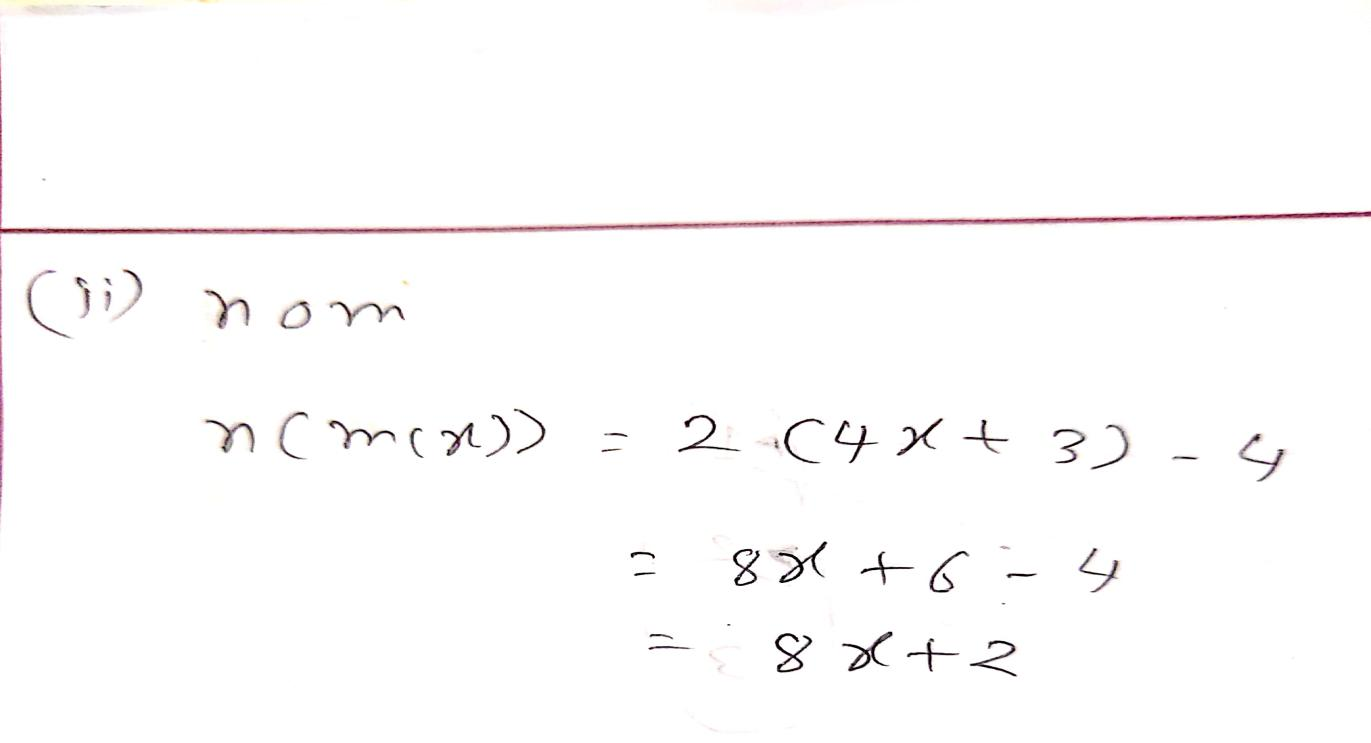 (ii) nom
n(m(x)) = 2 (4x + 3) - 4
= 8x + 6 - 4
= 8x + 2